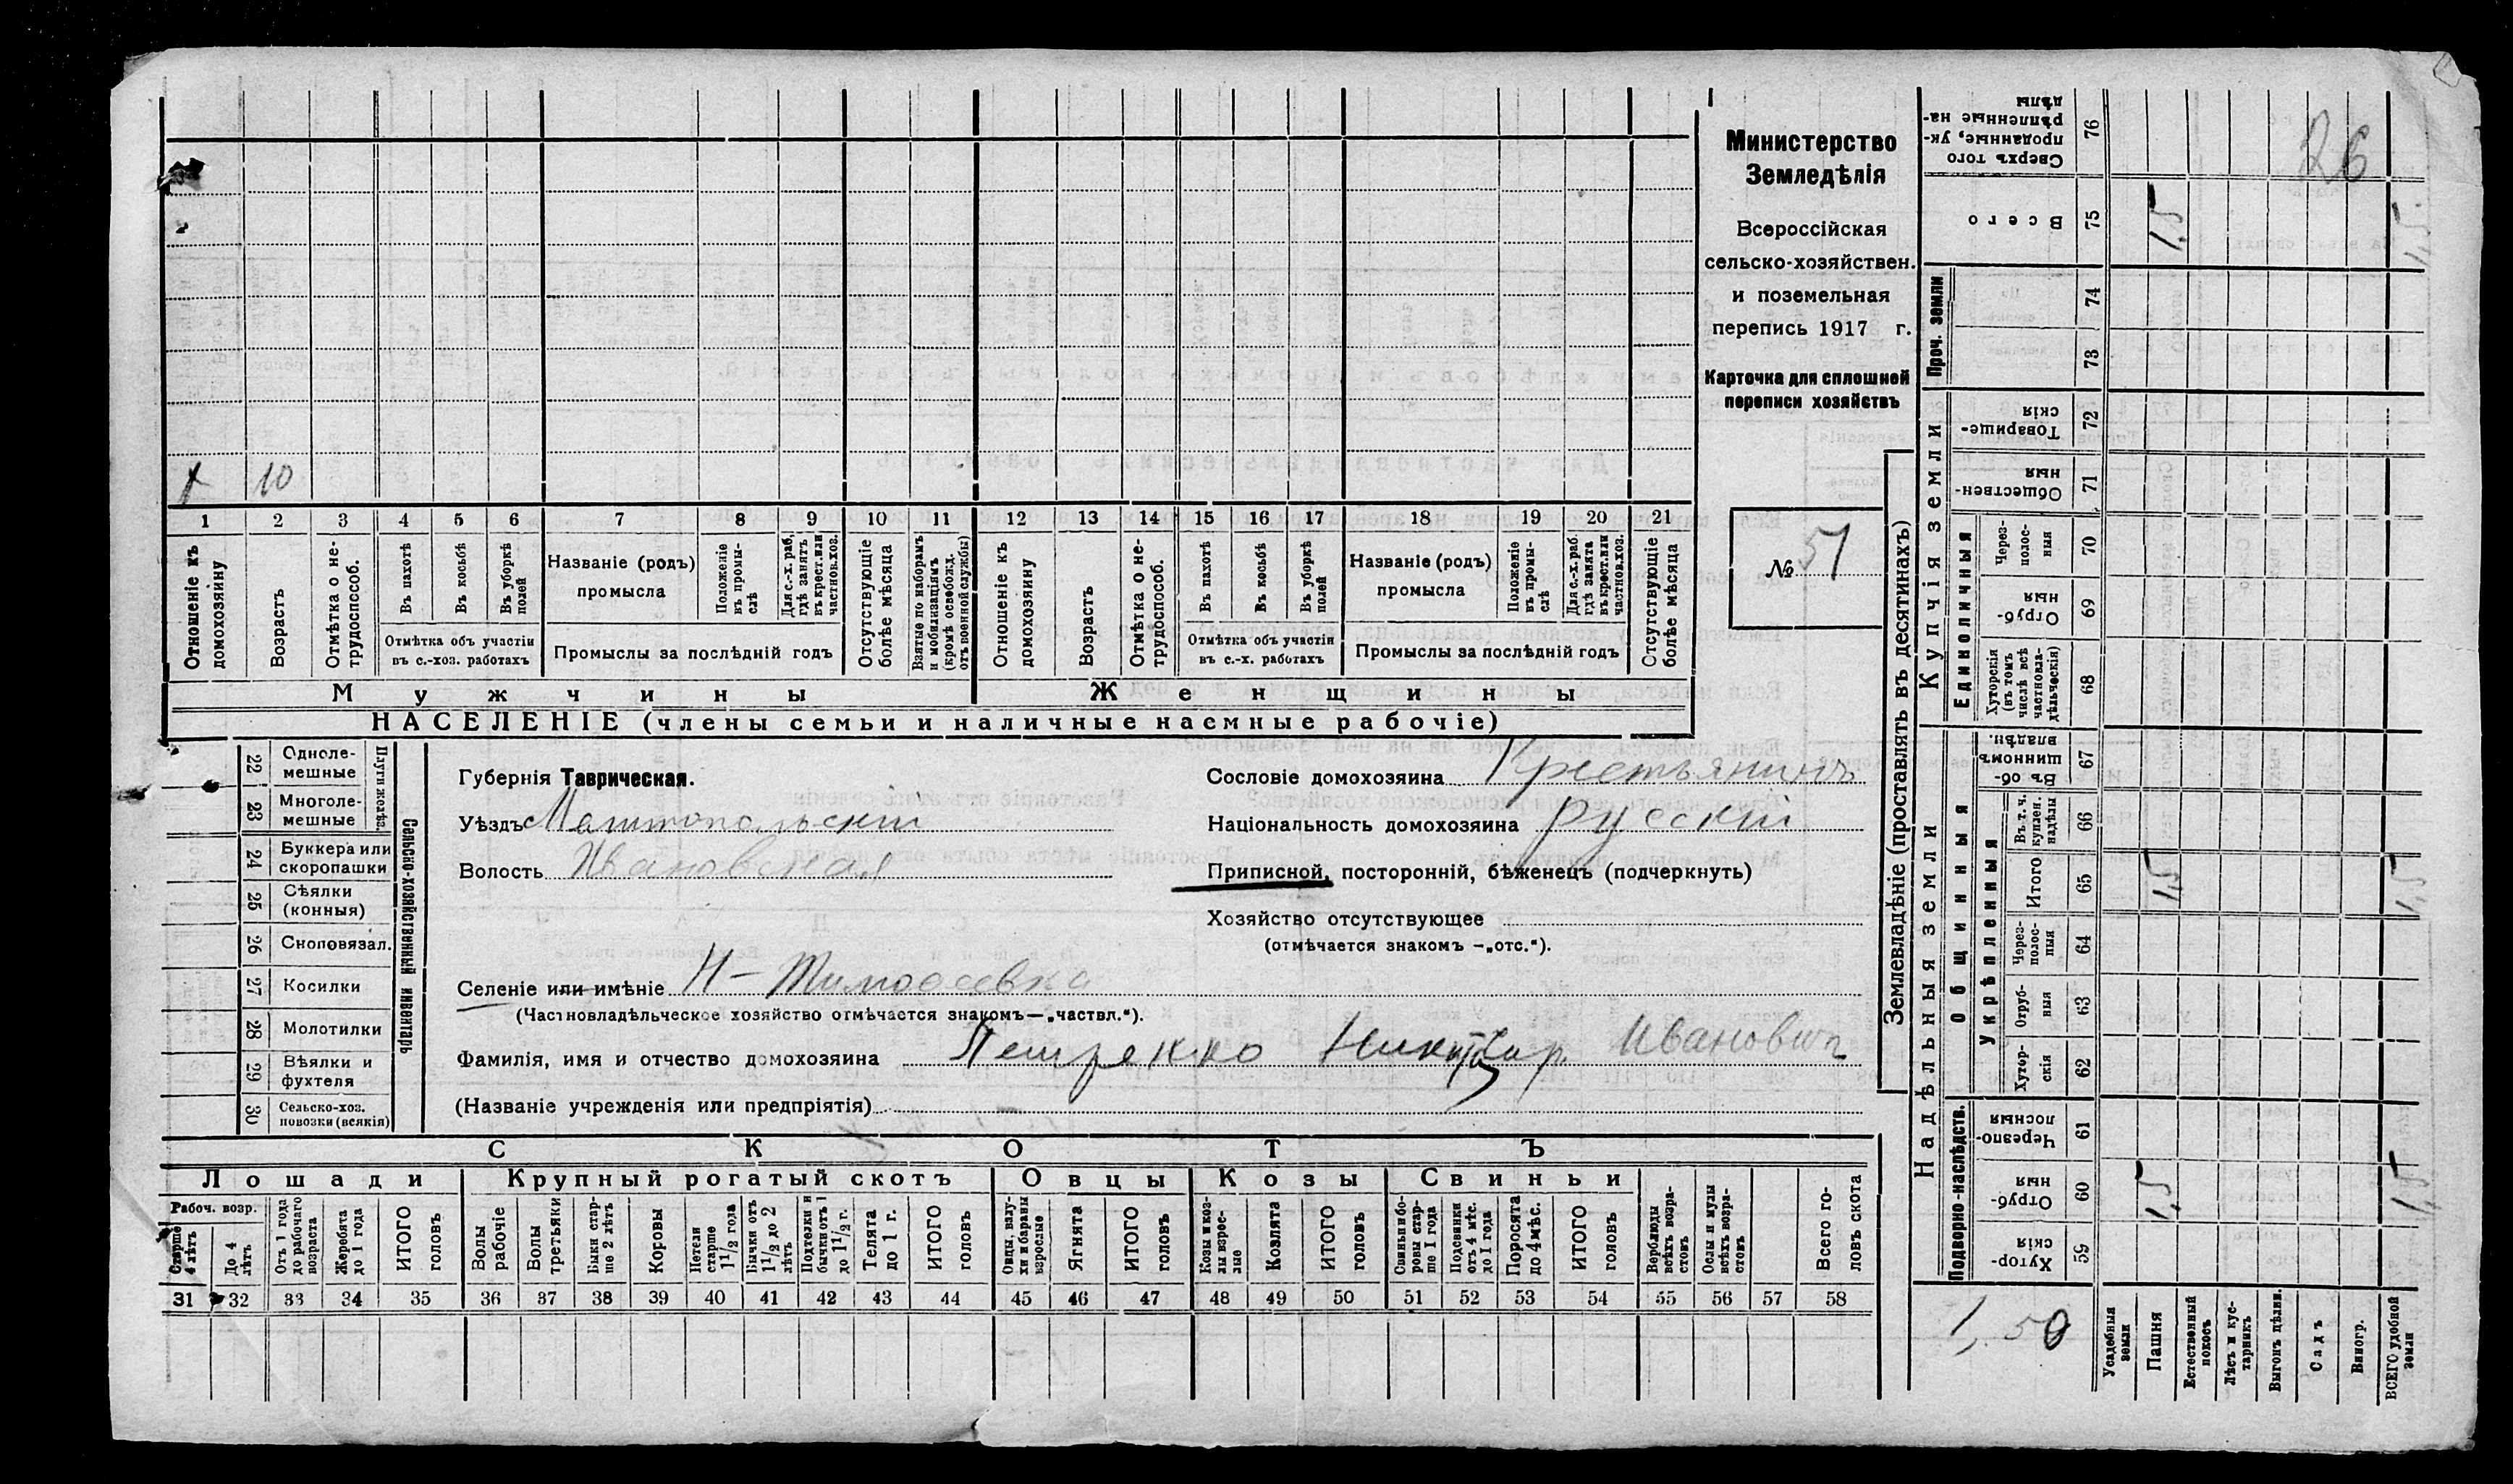 Министерство
Земледѣлія
Всероссійская
сельско-хозяйствен.
и поземельная
перепись 1917 г.
Карточка для сплошной
переписи хозяйствъ
№ 51
26
10
1 2 3 4 5 6 7 8 9 10 11 12 13 14 15 16 17 18 19 20 21
Отношеніе къ домохозяину
Возрастъ
Отмѣтка о не-трудоспособ.
Въ пахотѣ
Въ косьбѣ
Въ уборкѣ полей
Отмѣтка объ участіи
въ с.-хоз. работахъ
Названіе (родъ)
промысла
Положеніе въ промы-слѣ
Для с.-х. раб, гдѣ занятъ въ крест. или частнов. хоз.
Промыслы за послѣдній годъ
Отсутствующіе болѣе мѣсяца
Взятые по наборамъ и мобилизаціямъ (кромѣ освобожд. отъ военной службы)
Отношеніе къ домохозяину
Возрастъ
Отмѣтка о не-трудоспособ.
Въ пахотѣ
Въ косьбѣ
Въ уборкѣ полей
Отмѣтка объ участіи
въ с.-х. работахъ
Названіе (родъ)
промысла
Положеніе въ промы-слѣ
Для с.-х. раб. гдѣ занята въ крест. или частнов. хоз.
Промыслы за послѣдній годъ
Отсутствующіе болѣе мѣсяца
Мужчины Женщины
НАСЕЛЕНІЕ (члены семьи и наличные наемные рабочіе)
Сельско-хозяйственный инвентарь
22 Одноле-мешные
23 Многоле-мешные
24 Буккера или скоропашки
25 Сѣялки (конныя)
26 Сноповязал.
27 Косилки
28 Молотилки
29 Вѣялки и фухтеля
30 Сельско-хоз. повозки (всякія)
Губернія Таврическая.
Уѣздъ Мелитопольскій
Волость Ивановская
Сословіе домохозяина Крестьянинъ
Національность домохозяина русскій
Приписной, посторонній, бѣженецъ (подчеркнуть)
Хозяйство отсутствующее
(отмѣчается знакомъ —„отс.“).
Селеніе или имѣніе Н-Тимофеевка
(Частновладѣльческое хозяйство отмѣчается знакомъ—„частвл.“).
Фамилія, имя и отчество домохозяина Иванович
(Названіе учрежденія или предпріятія)
СКОТЪ
Лошади Крупный рогатый скотъ Овцы Козы Свиньи
Рабоч. возр.
Старше 4 лѣтъ
До 4 лѣтъ
Отъ 1 года до рабочаго возраста
Жеребята до 1 года
ИТОГО головъ
Волы рабочіе
Волы третьяки
Быки стар-ше 2 лѣтъ
Коровы
Нетели старше 1 1/2 года
Бычки отъ 1 1/2 до 2 лѣтъ
Подтелки и бычки отъ 1 до 1 1/2 г.
Телята до 1 г.
ИТОГО головъ
Овцы, валу-хи и бараны взрослые
Ягнята
ИТОГО головъ
Козы и коз-лы взрос-лые
Козлята
ИТОГО головъ
Свиньи и бо-ровы стар-ше 1 года
Подсвинки отъ 4 мѣс. до 1 года
Поросята до 4 мѣс.
ИТОГО головъ
Верблюды всѣхъ возра-стовъ
Ослы и мулы всѣхъ возра-стовъ
Всего го-ловъ скота
31 32 33 34 35 36 37 38 39 40 41 42 43 44 45 46 47 48 49 50 51 52 53 54 55 56 57 58
Землевладѣніе (проставлять въ десятинахъ)
Сверхъ того проданные, ук-рѣпленные на-дѣлы 76
Всего 75 1,5 1,5
Проч. земли
74
73
Купчія земли
Товарище-скія 72
Обществен-ныя 71
Единоличныя
Через-полос-ныя 70
Отруб-ныя 69
Хуторскія (въ томъ числѣ всѣ частновла-дѣльческія) 68
Надѣльныя земли
Общинныя
Въ об-щинномъ владѣн. 67
Укрѣпленныя
Въ т. ч. куплен. надѣлы 66
Итого 65 1,5 1,5
Через-полос-ныя 64
Отруб-ныя 63
Хутор-скія 62
Подворно-наслѣдств.
Черезпо-лосныя 61
Отруб-ныя 60 1,5 1,5
Хутор-скія 59
1,50
Усадебныя земли
Пашня
Естественный покосъ
Лѣсъ и кус-тарникъ
Выгонъ дѣлян.
Садъ
Виногр.
ВСЕГО удобной земли